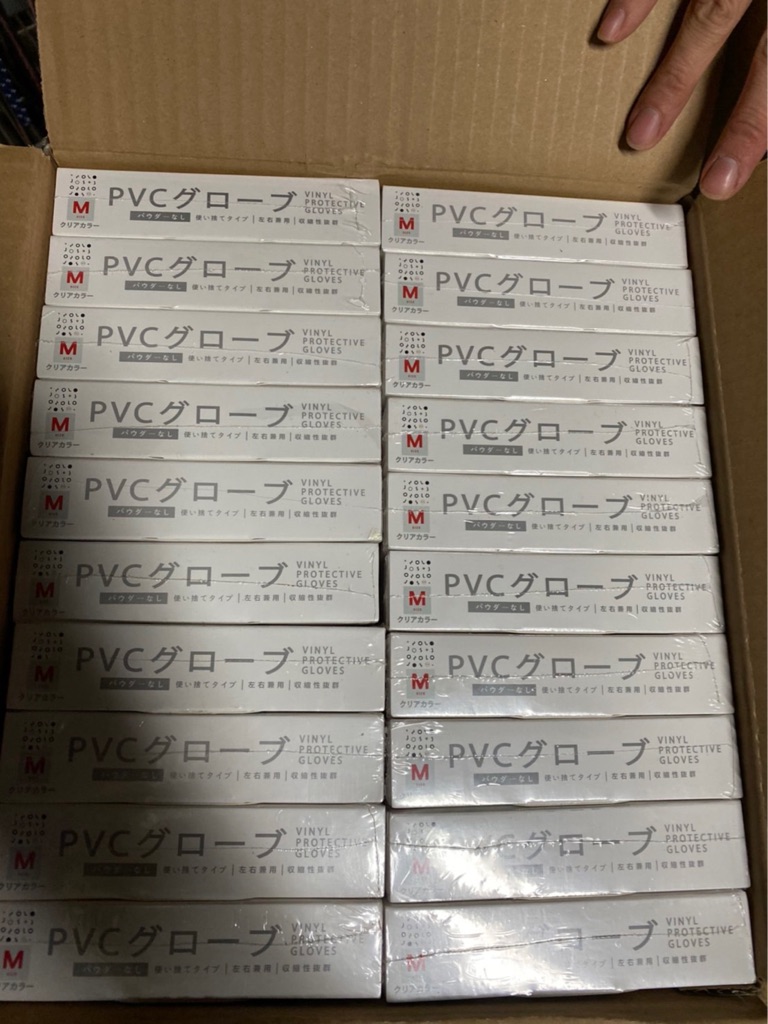 M
クリアカラー
PVCグローブ
VINYL
PROTECTIVE
GLOVES
パウダーなし 使い捨てタイプ | 左右兼用 | 収縮性抜群
M
クリアカラー
PVCグローブ
VINYL
PROTECTIVE
GLOVES
パウダーなし 使い捨てタイプ | 左右兼用 | 収縮性抜群
M
クリアカラー
PVCグローブ
VINYL
PROTECTIVE
GLOVES
パウダーなし 使い捨てタイプ | 左右兼用 | 収縮性抜群
M
クリアカラー
PVCグローブ
VINYL
PROTECTIVE
GLOVES
パウダーなし 使い捨てタイプ | 左右兼用 | 収縮性抜群
M
クリアカラー
PVCグローブ
VINYL
PROTECTIVE
GLOVES
パウダーなし 使い捨てタイプ | 左右兼用 | 収縮性抜群
M
クリアカラー
PVCグローブ
VINYL
PROTECTIVE
GLOVES
パウダーなし 使い捨てタイプ | 左右兼用 | 収縮性抜群
M
クリアカラー
PVCグローブ
VINYL
PROTECTIVE
GLOVES
パウダーなし 使い捨てタイプ | 左右兼用 | 収縮性抜群
M
クリアカラー
PVCグローブ
VINYL
PROTECTIVE
GLOVES
パウダーなし 使い捨てタイプ | 左右兼用 | 収縮性抜群
M
クリアカラー
PVCグローブ
VINYL
PROTECTIVE
GLOVES
パウダーなし 使い捨てタイプ | 左右兼用 | 収縮性抜群
M
クリアカラー
PVCグローブ
VINYL
PROTECTIVE
GLOVES
パウダーなし 使い捨てタイプ | 左右兼用 | 収縮性抜群
M
クリアカラー
PVCグローブ
VINYL
PROTECTIVE
GLOVES
パウダーなし 使い捨てタイプ | 左右兼用 | 収縮性抜群
M
クリアカラー
PVCグローブ
VINYL
PROTECTIVE
GLOVES
パウダーなし 使い捨てタイプ | 左右兼用 | 収縮性抜群
M
クリアカラー
PVCグローブ
VINYL
PROTECTIVE
GLOVES
パウダーなし 使い捨てタイプ | 左右兼用 | 収縮性抜群
M
クリアカラー
PVCグローブ
VINYL
PROTECTIVE
GLOVES
パウダーなし 使い捨てタイプ | 左右兼用 | 収縮性抜群
M
クリアカラー
PVCグローブ
VINYL
PROTECTIVE
GLOVES
パウダーなし 使い捨てタイプ | 左右兼用 | 収縮性抜群
M
クリアカラー
PVCグローブ
VINYL
PROTECTIVE
GLOVES
パウダーなし 使い捨てタイプ | 左右兼用 | 収縮性抜群
M
クリアカラー
PVCグローブ
VINYL
PROTECTIVE
GLOVES
パウダーなし 使い捨てタイプ | 左右兼用 | 収縮性抜群
M
クリアカラー
PVCグローブ
VINYL
PROTECTIVE
GLOVES
パウダーなし 使い捨てタイプ | 左右兼用 | 収縮性抜群
M
クリアカラー
PVCグローブ
VINYL
PROTECTIVE
GLOVES
使い捨てタイプ | 左右兼用 | 収縮性抜群
M
クリアカラー
ーブ
VINYL
PROTECTIVE
GLOVES
左右兼用 | 収縮性抜群